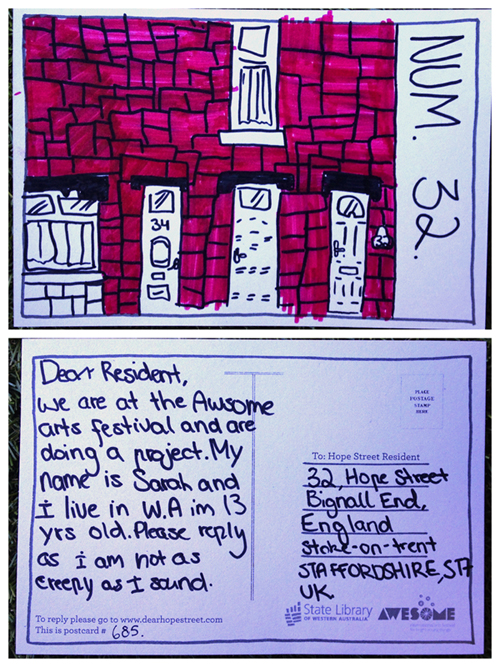 NUM. 32.
34
32
Dear Resident,
we are at the Awsome
arts festival and are
doing a project. My
name is Sarah and
I live in W.A im 13
yrs old. Please reply
as i am not as
creepy as I sound.
To reply please go to www.dearhopestreet.com
This is postcard # 685.
PLACE
POSTAGE
STAMP
HERE
To: Hope Street Resident
32, Hope Street
Bignall End,
England
Stoke-on-trent
STAFFORDSHIRE, ST7
UK
State Library
OF WESTERN AUSTRALIA
AWESOME